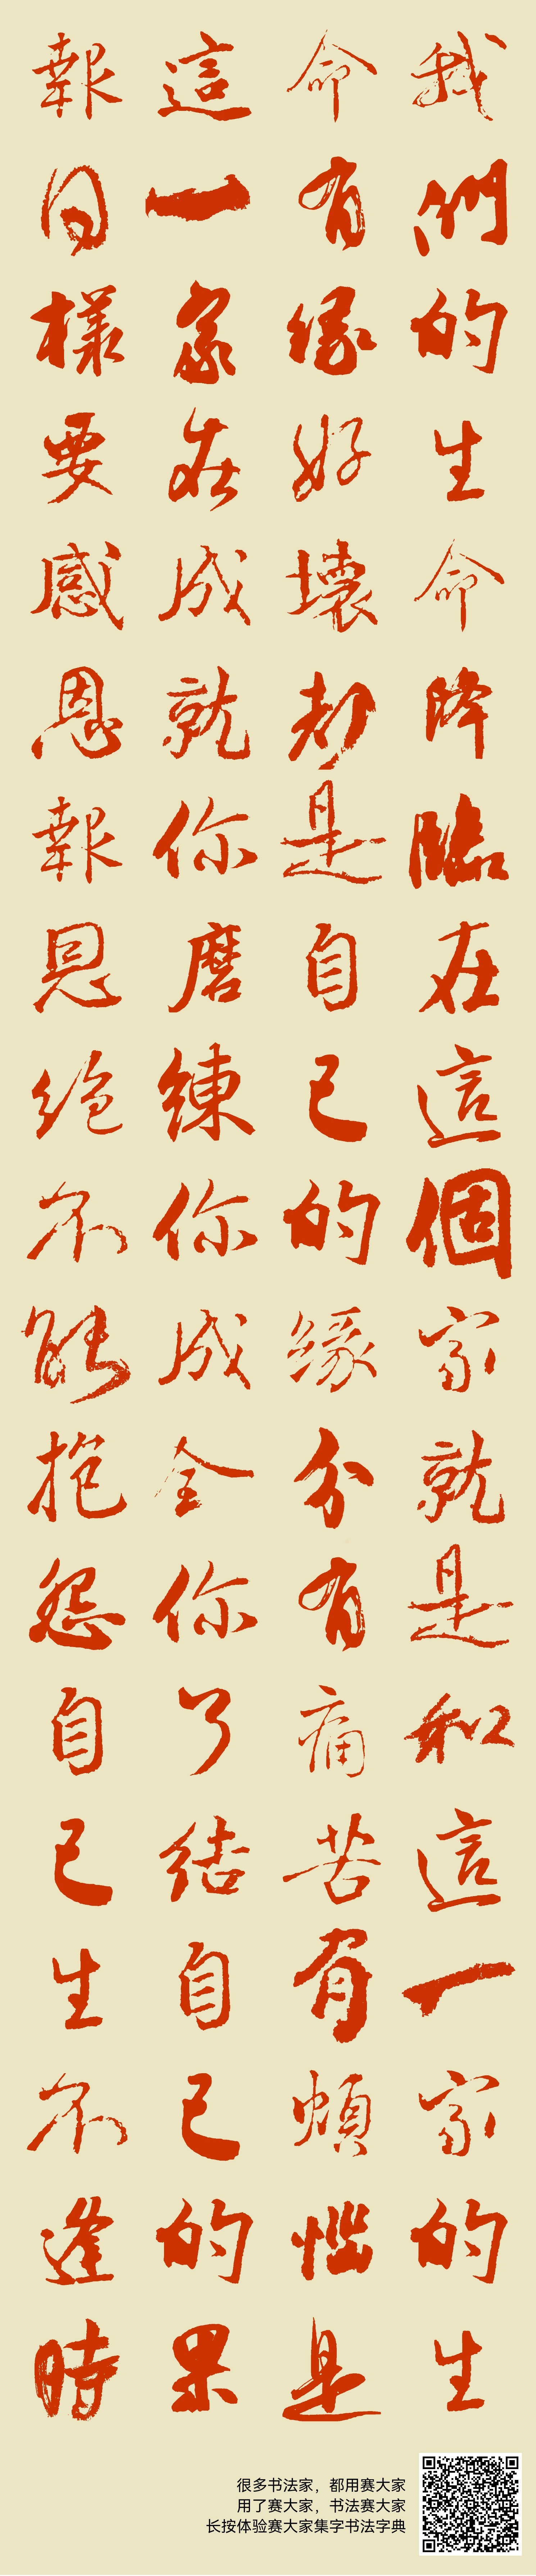 我們的生命降臨在這個家就是和這一家的生
命有缘好壞都是自己的缘分有痛苦有煩惱是
這一家在成就你磨練你成全你了结自己的果
報同樣要感恩報恩绝不能抱怨自己生不逢時
很多书法家，都用赛大家
用了赛大家，书法赛大家
长按体验赛大家集字书法字典